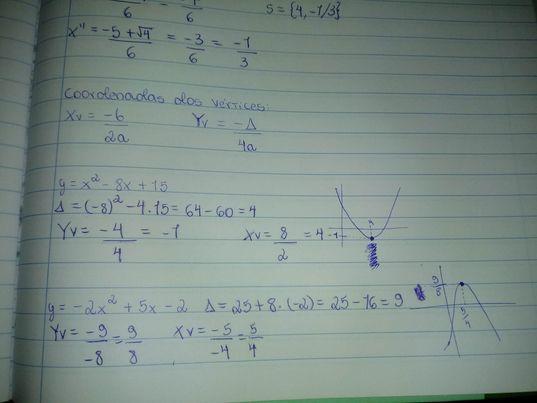 6 6 S = {4, -1/3}
x" = -5 + √4 / 6 = -3/6 = -1/3
Coordenadas dos vértices:
Xv = -b/2a Yv = -Δ/4a
y = x² - 8x + 15
Δ = (-8)² - 4.15 = 64 - 60 = 4
Yv = -4/4 = -1 Xv = 8/2 = 4 -1
y = -2x² + 5x - 2 Δ = 25 + 8.(-2) = 25 - 16 = 9
Yv = -9/-8 = 9/8 Xv = -5/-4 = 5/4 9/8 5/4